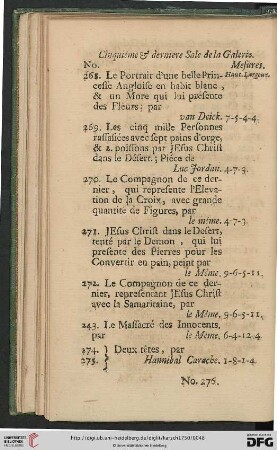 Cinquiéme & derniere Sale de la Galerie.
No. Mesures.
268. Le Portrait d'une belle Prin- Haut. Largeur.
cesse Angloise en habit blanc,
& un More qui lui présente
des Fleurs; par
van Deick. 7-5-4-4.
269. Les cinq mille Personnes
rassasiées avec sept pains d'orge,
& 2. poissons par JEsus Christ
dans le Désert; Piéce de
Luc Jordan. 4-7-3.
270. Le Compagnon de ce der-
nier, qui represente l'Eleva-
tion de la Croix, avec grande
quantité de Figures, par
le même. 4-7-3.
271. JEsus Christ dans le Desert,
tenté par le Demon, qui lui
presente des Pierres pour les
Convertir en pain, peint par
le Même. 9-6-5-11.
272. Le Compagnon de ce der-
nier, representant JEsus Christ
avec la Samaritaine, par
le Même. 9-6-5-11.
243. Le Massacre des Innocents,
par le Même. 6-4-12-4.
274. } Deux têtes, par
275. } Hannibal Carache. 1-8-1-4.
No. 276.
http://digi.ub.uni-heidelberg.de/diglit/karsch1750/0048
© Universitätsbibliothek Heidelberg